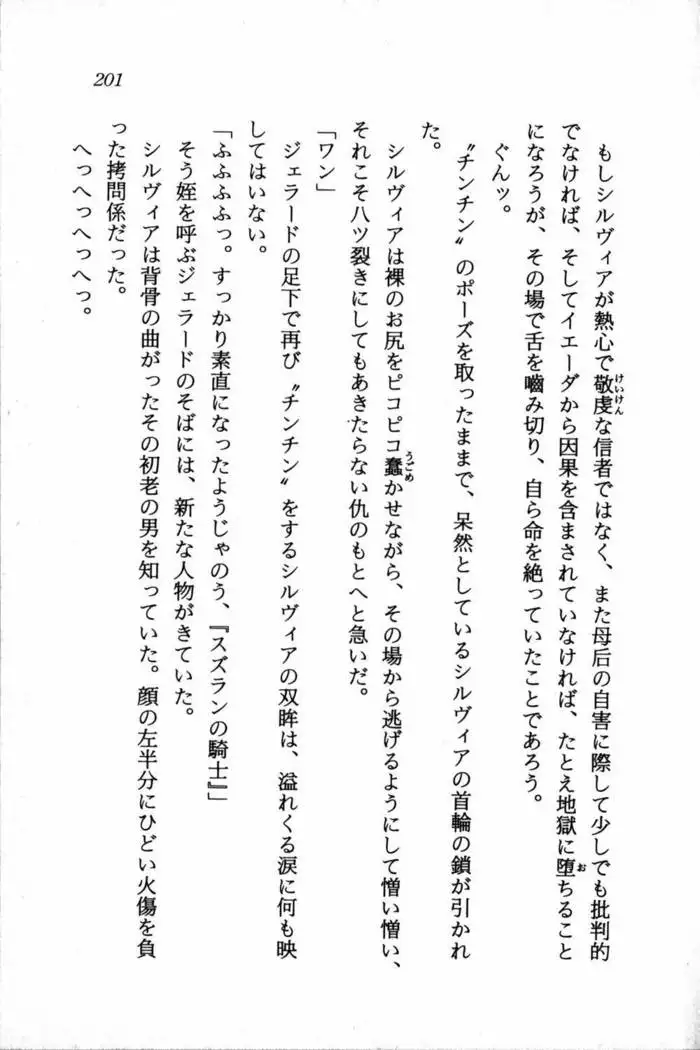 201
もしシルヴィアが熱心で敬虔な信者ではなく、また母后の自害に際して少しでも批判的
でなければ、そしてイエーダから因果を含まされていなければ、たとえ地獄に堕ちること
になろうが、その場で舌を嚙み切り、自ら命を絶っていたことであろう。
ぐんッ。
〝チンチン〟のポーズを取ったままで、呆然としているシルヴィアの首輪の鎖が引かれ
た。
シルヴィアは裸のお尻をピコピコ蠢かせながら、その場から逃げるようにして憎い憎い、
それこそ八ツ裂きにしてもあきたらない仇のもとへと急いだ。
「ワン」
ジェラードの足下で再び〝チンチン〟をするシルヴィアの双眸は、溢れくる涙に何も映
してはいない。
「ふふふふっ。すっかり素直になったようじゃのう、『スズランの騎士』」
そう姪を呼ぶジェラードのそばには、新たな人物がきていた。
シルヴィアは背骨の曲がったその初老の男を知っていた。顔の左半分にひどい火傷を負
った拷問係だった。
へっへっへっへっ。